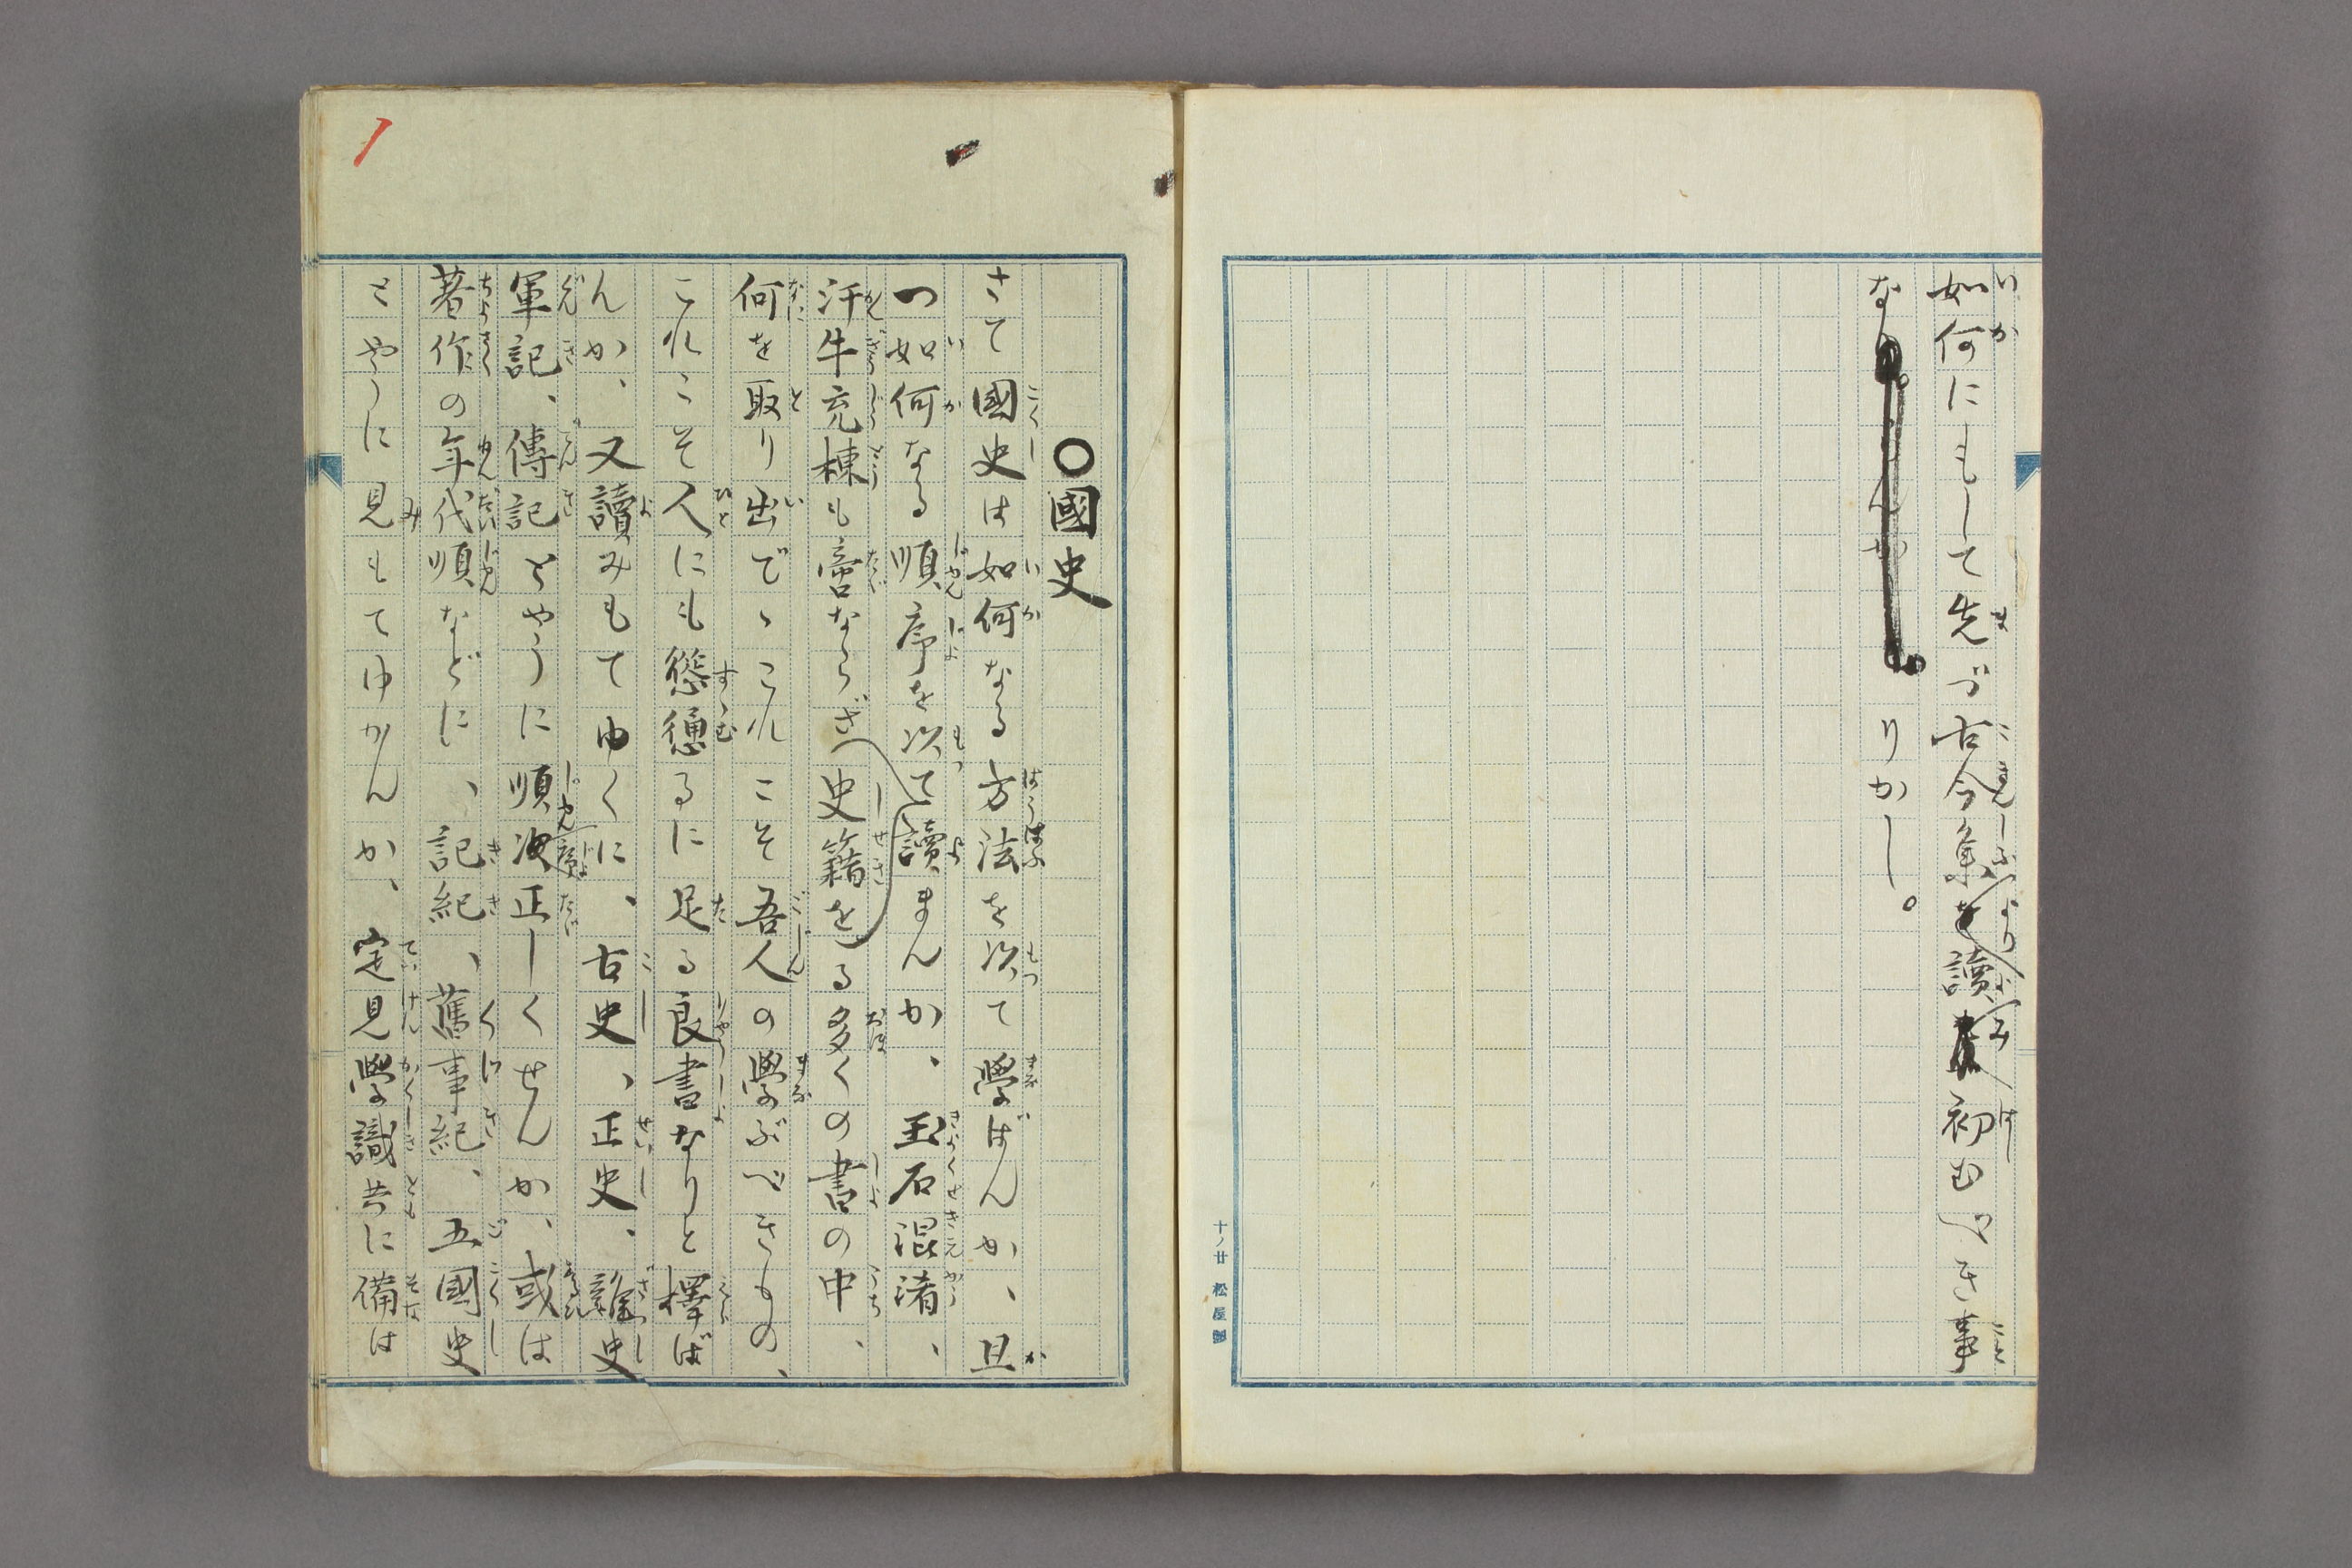 如何にもして先づ古今集より讀み初むべき事
なりかし。
十ノ廿 松屋製
○國史
さて國史は如何なる方法を以て學ばんか、且
つ如何なる順序を以て讀まんか、玉石混淆、
汗牛充棟も啻ならざる多くの史籍を書の中、
何を取り出でゝこれこそ吾人の學ぶべきもの、
これこそ人にも慫慂るに足る良書なりと擇ば
んか、又讀みもてゆくに、古史、正史、雜史
軍記、傳記とやうに順序正しくせんか、或は
著作の年代順などに、記紀、舊事紀、五國史
とやうに見もてゆかんか、定見學識共に備は